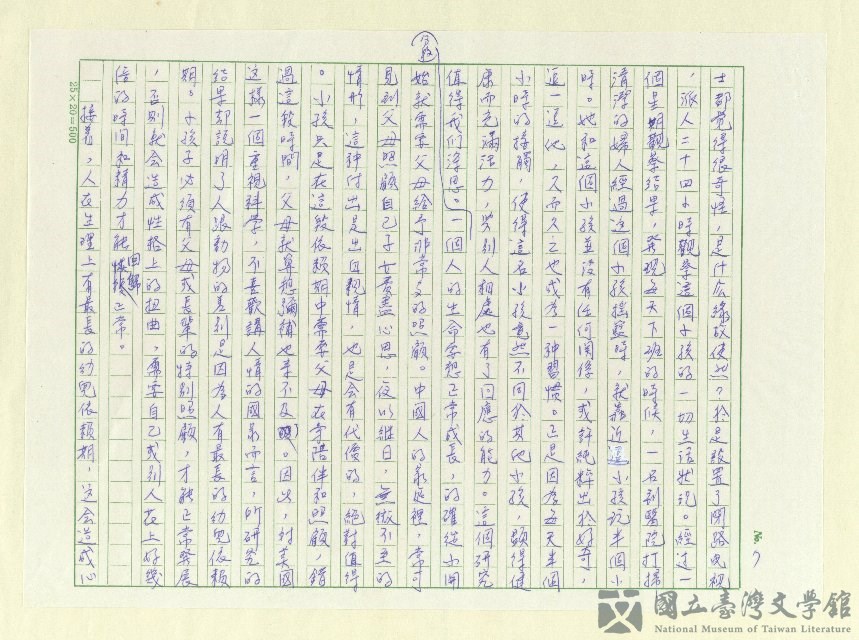 士都覺得很奇怪，是什么緣故使然？於是設置了閉路電視
，派人二十四小時觀察這個小孩的一切生活狀況。經過一
個星期觀察結果，發現每天下班的時候，一名到醫院打掃
清潔的婦人經過這個小孩搖籃時，就靠近這小孩玩半個小
時。她和這個小孩並沒有任何關係，或許純粹出於好奇，
逗一逗他，久而久之也成為一种習慣。正是因為每天半個
小時的接觸，使得這名小孩竟然不同於其他小孩，顯得健
康而充滿活力，與別人相處也有了回應的能力。這個研究
值得我們深思。一個人的生命要想正常成長，的確從小開
始就需要父母給予非常多的照顧。中國人的家庭裡，常可
見到父母照顧自己子女費盡心思，夜以繼日，無微不至的
情形，這种付出是出自親情，也是会有代價的，絕對值得
。小孩只是在這段依賴期中需要父母在旁陪伴和照顧，錯
過這段時間，父母就算想彌補也來不及。因此，對英國
這樣一個重視科学，不喜歡講人情的國家而言，所研究的
結果却說明了人跟動物的差別是因為人有最長的幼兒依賴
期。小孩子必須有父母或長輩的特別照顧，才能正常發展
，否則就会造成性格上的扭曲，需要自己或別人花上好幾
倍的時间和精力才能回歸正常。
接着，人在生理上有最長的幼兒依賴期，這会造成心
25×20=500
No. 7
國立臺灣文學館
National Museum of Taiwan Literature